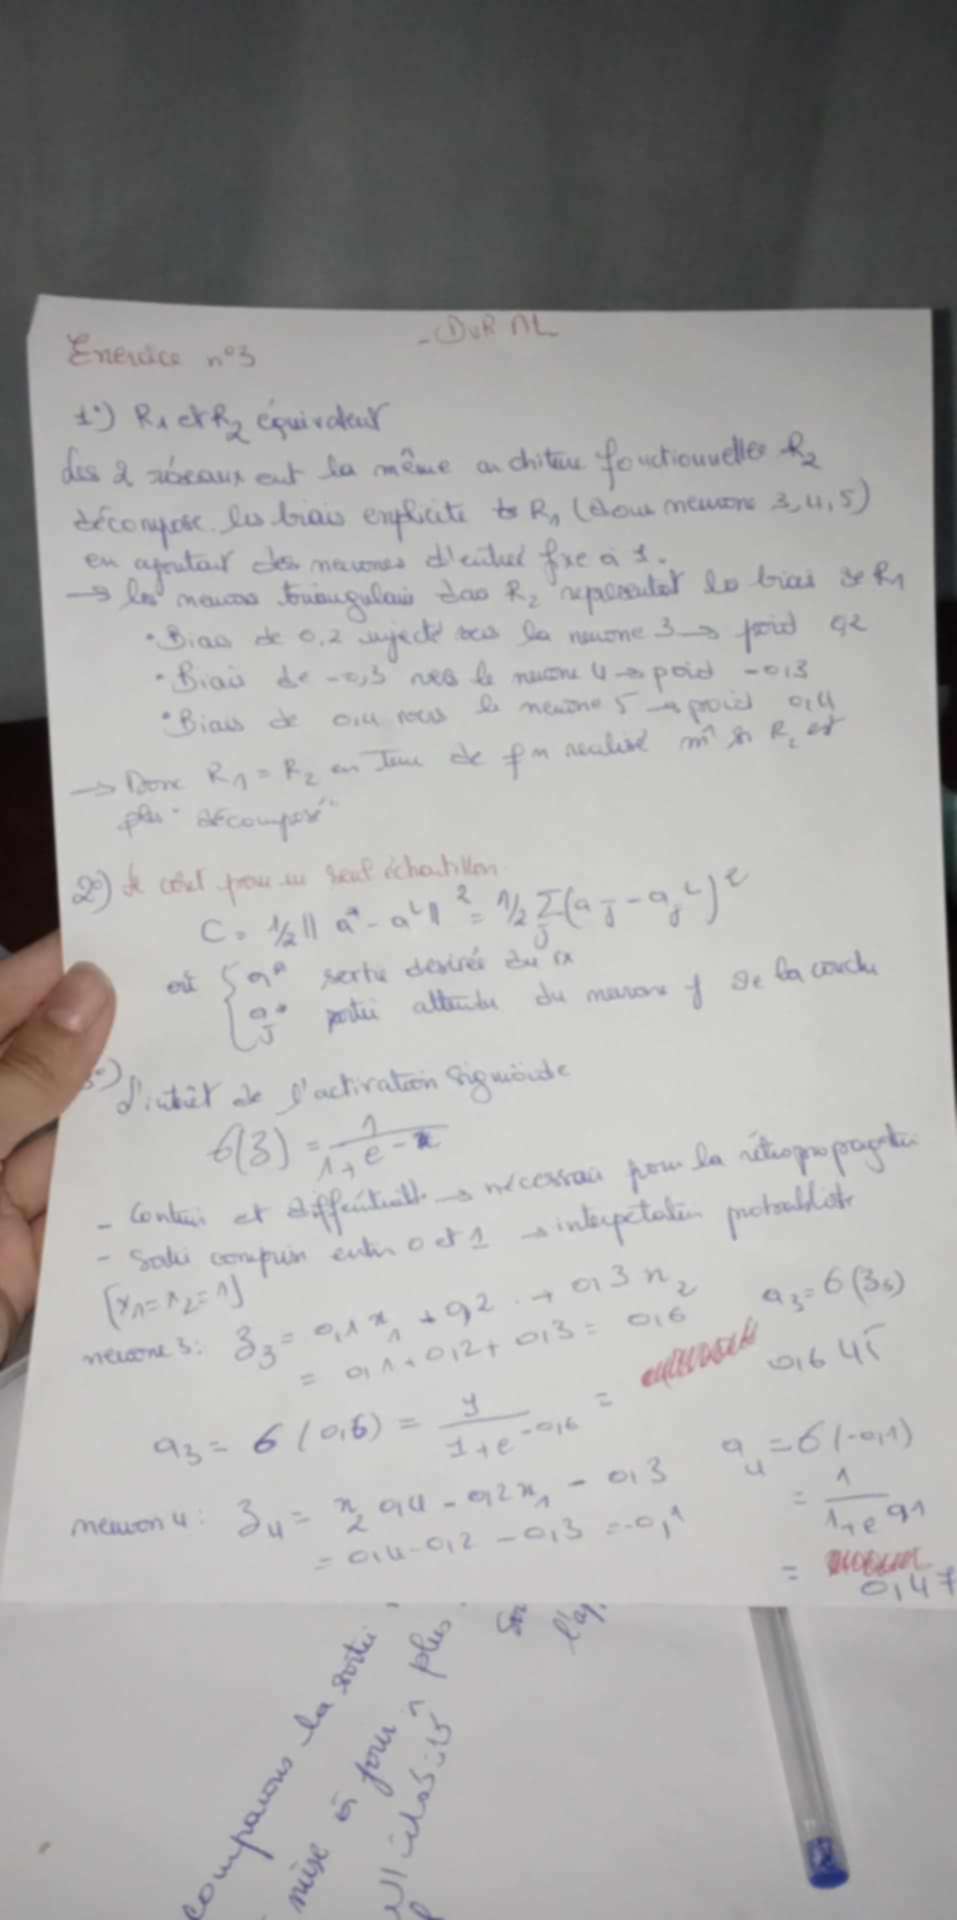 - DVRML
Exercice n°3
1°) R1 et R2 équivalent
Les 2 réseaux ont la même architure fonctionnelle R2
décompose les biais explicite R1 (dons neurone 3, 4, 5)
en ajoutant des neurones d'entrée fixe à 1.
→ les neurons triangulais dans R2 representet les biais de R1
• Biais de 0,2 injecté vers la neurone 3 → poid 0,2
• Biais de -0,3 vers le neurone 4 → poid -0,3
• Biais de 0,4 vers le neurone 5 → poid 0,4
→ Donc R1 = R2 en Term de fn realisé m^ si R2 est
plus "décomposé"
2°) le coût pour un seul échatillon
C = 1/2 || a* - a^L ||² = 1/2 Σj (aj - aj^L)²
où { a* sortie désirée du
aj* sortie attendu du neurone j de la couche
3°) L'intérêt de l'activation sigmoïde
6(3) = 1 / 1 + e^-x
- Continu et differentiable → nécessaire pour la rétropropagation
- Sortie compris entre 0 et 1 → interpétation probabiliste
[x1 = x2 = 1]
neurone 3: z3 = 0,1 x1 + 0,2 + 0,3 x2 a3 = 6(z3)
= 0,1 + 0,2 + 0,3 = 0,6 0,645
a3 = 6(0,6) = 1 / 1 + e^-0,6 =
neuron 4: z4 = x2 0,4 - 0,2 x1 - 0,3 a4 = 6(-0,1)
= 0,4 - 0,2 - 0,3 = -0,1 = 1 / 1 + e^0,1
= 0,47
comparons la sortie
mise à jour plus
l'ap